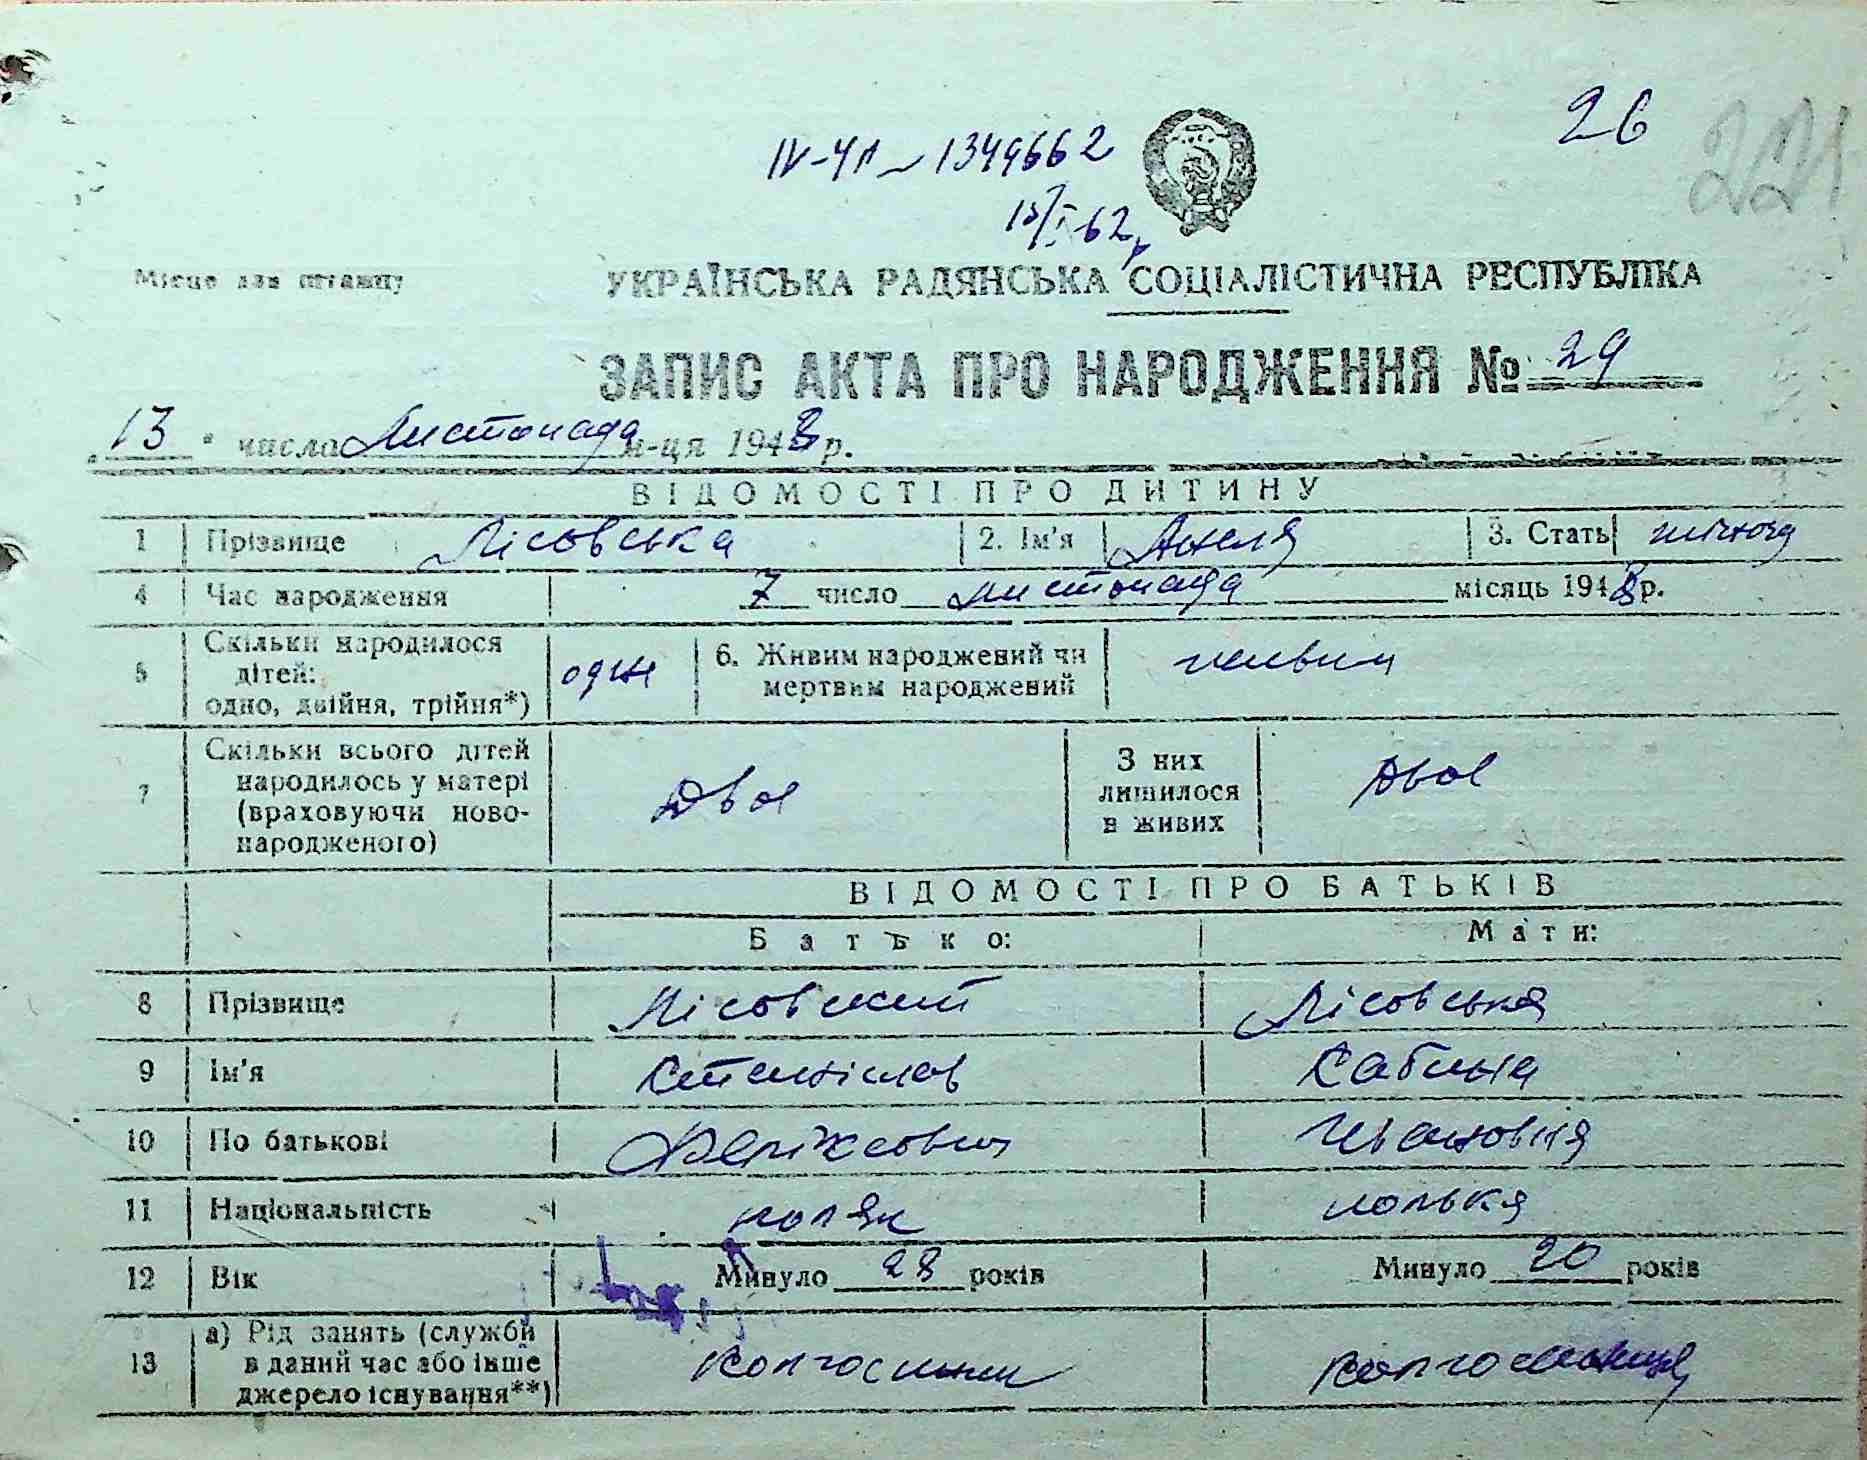 26
221
IV-УЛ № 1349662
15/I-62р
Місце для штампу
УКРАЇНСЬКА РАДЯНСЬКА СОЦІАЛІСТИЧНА РЕСПУБЛІКА
ЗАПИС АКТА ПРО НАРОДЖЕННЯ № 29
„13" число Листопада м-ця 1948 р.
ВІДОМОСТІ ПРО ДИТИНУ
1 Прізвище Лісовська 2. Ім'я Анеля 3. Стать жіноча
4 Час народження 7 число листопада місяць 1948 р.
5 Скільки народилося дітей: одно, двійня, трійня*) одне 6. Живим народжений чи мертвим народжений живим
7 Скільки всього дітей народилось у матері (враховуючи ново-народженого) Двоє З них лишилося в живих Двоє
ВІДОМОСТІ ПРО БАТЬКІВ
Батько: Мати:
8 Прізвище Лісовський Лісовська
9 Ім'я Станіслав Сабина
10 По батькові Феліксович Ивановна
11 Національність поляк полька
12 Вік Минуло 28 років Минуло 20 років
13 а) Рід занять (служби в даний час або інше джерело існування**) Колгоспник Колгоспниця